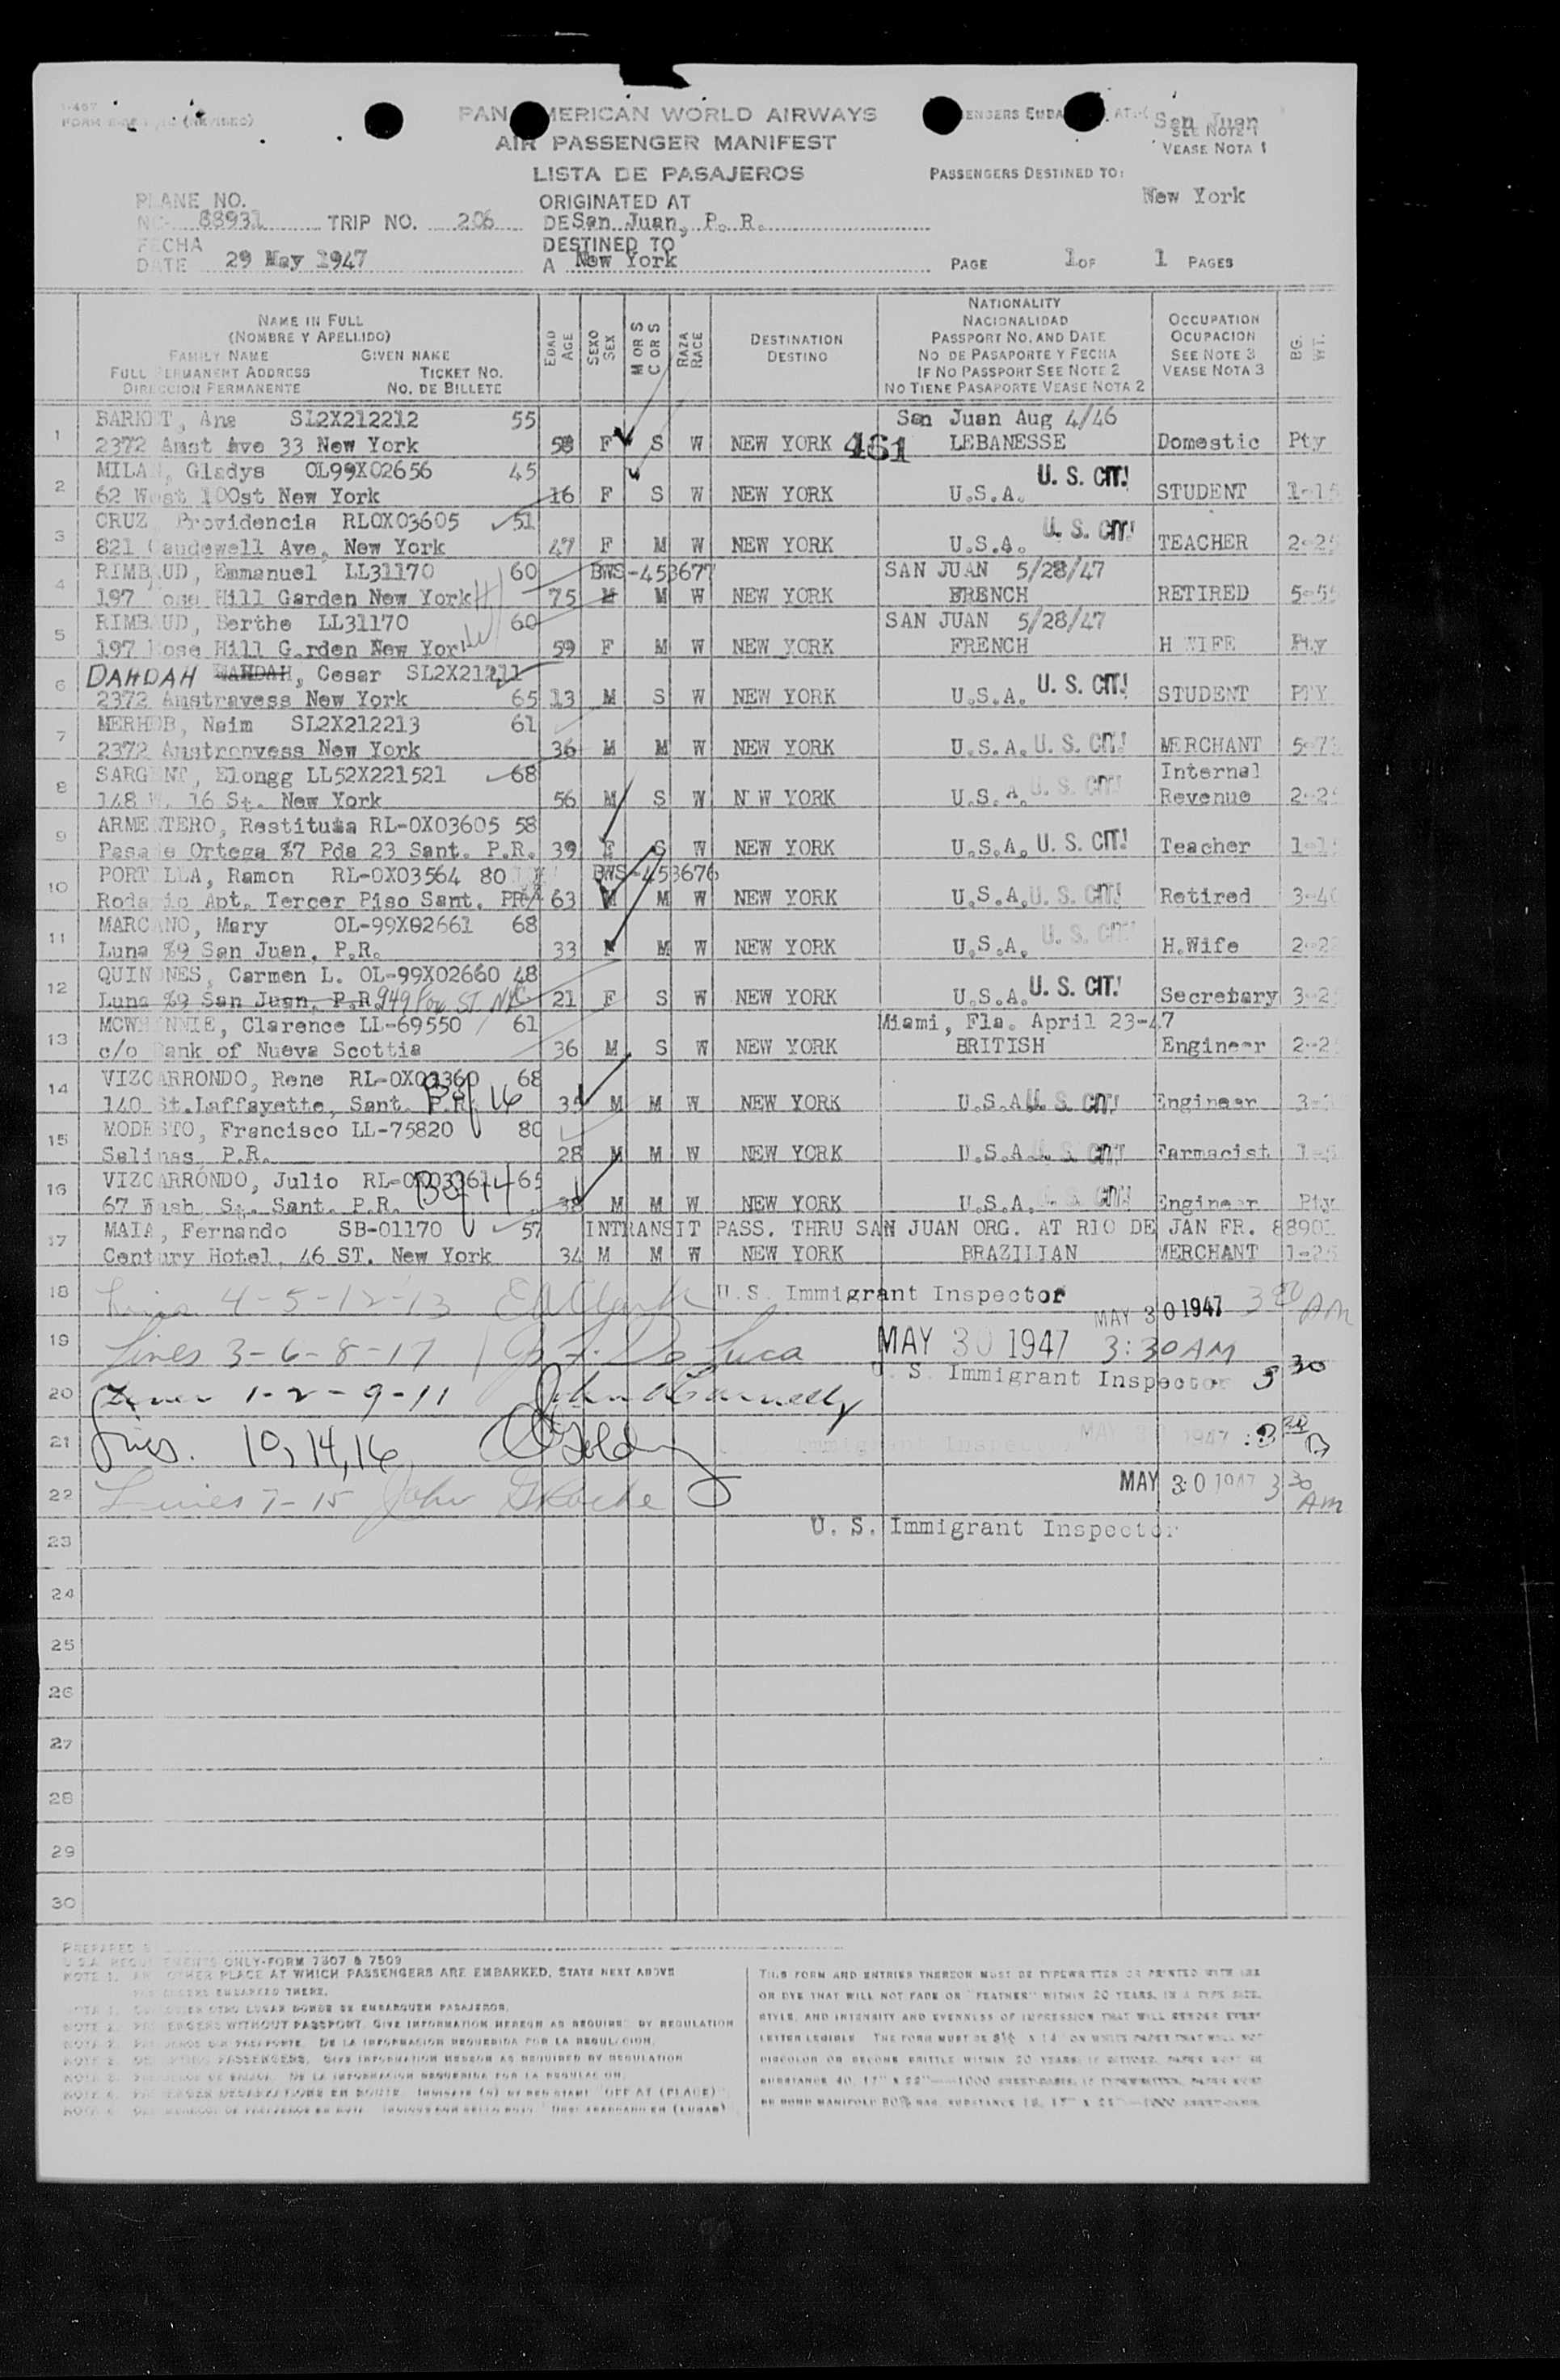 PAN AMERICAN WORLD AIRWAYS
AIR PASSENGER MANIFEST
LISTA DE PASAJEROS
San Juan
SEE NOTE 1
VEASE NOTA 1
PASSENGERS DESTINED TO:
New York
PLANE NO.
NC- 88931 TRIP NO. 206
ORIGINATED AT
DE San Juan, P. R.
FECHA
DATE 29 May 1947
DESTINED TO
A New York
PAGE 1 OF 1 PAGES
NAME IN FULL
(NOMBRE Y APELLIDO)
FAMILY NAME GIVEN NAME
FULL PERMANENT ADDRESS TICKET NO.
DIRECCION PERMANENTE NO. DE BILLETE
EDAD AGE
SEXO SEX
M OR S C OR S
RAZA RACE
DESTINATION
DESTINO
NATIONALITY
NACIONALIDAD
PASSPORT NO. AND DATE
NO DE PASAPORTE Y FECHA
IF NO PASSPORT SEE NOTE 2
NO TIENE PASAPORTE VEASE NOTA 2
OCCUPATION
OCUPACION
SEE NOTE 3
VEASE NOTA 3
BG. WT.
1 BARKET, Ana SL2X212212 55 San Juan Aug 4/46
2372 Amst Ave 33 New York 58 F S W NEW YORK 461 LEBANESSE Domestic Pty
2 MILAN, Gladys OL99X02656 45 U. S. CIT!
62 West 100st New York 16 F S W NEW YORK U.S.A. STUDENT
3 CRUZ, Providencia RLOX03605 51 U. S. CIT!
821 Caudewell Ave. New York 47 F M W NEW YORK U.S.A. TEACHER 2-25
4 RIMBAUD, Emmanuel LL31170 60 BWS-453677 SAN JUAN 5/28/47
197 Rose Hill Garden New York 75 M M W NEW YORK FRENCH RETIRED
5 RIMBAUD, Berthe LL31170 60 SAN JUAN 5/28/47
197 Rose Hill G.rden New York 59 F M W NEW YORK FRENCH H WIFE Pty
6 DAHDAH, Cesar SL2X21211 U. S. CIT!
2372 Amstravess New York 65 13 M S W NEW YORK U.S.A. STUDENT PTY
7 MERHEB, Naim SL2X212213 61
2372 Amstronvess New York 36 M M W NEW YORK U.S.A. U. S. CIT! MERCHANT
8 SARGENT, Elongg LL52X221521 68 Internal
148 W. 16 St. New York 56 M S W N W YORK U.S.A. U. S. CIT! Revenue
9 ARMENTERO, Restituta RL-OX03605 58
Pasaje Ortega %7 Pda 23 Sant. P.R. 39 F S W NEW YORK U.S.A. U. S. CIT! Teacher
10 PORTELLA, Ramon RL-OX03564 80 BWS-453676
Apt. Tercer Piso Sant. PR 63 M M W NEW YORK U.S.A. U. S. CIT! Retired
11 MARCANO, Mary OL-99X02661 68
Luna %9 San Juan, P.R. 33 F M W NEW YORK U.S.A. U. S. CIT! H.Wife
12 QUINONES, Carmen L. OL-99X02660 48
Luna %9 San Juan, P.R 949 Fox ST. NYC 21 F S W NEW YORK U.S.A. U. S. CIT! Secretary
13 MCWHINNIE, Clarence LL-69550 61 Miami, Fla. April 23-47
c/o Bank of Nueva Scottia 36 M S W NEW YORK BRITISH Engineer
14 VIZCARRONDO, Rene 68
140 St.Laffayette, Sant. P.R. 16 M M W NEW YORK U.S.A U. S. CIT! Engineer
15 MODESTO, Francisco LL-75820 80
Salinas P.R. 28 M M W NEW YORK U.S.A U. S. CIT! Farmacist
16 VIZCARRONDO, Julio 65
67 Wash. St. Sant. P.R. 14 38 M M W NEW YORK U.S.A. U. S. CIT! Engineer Pty
17 MAIA, Fernando SB-01170 57 INTRANSIT PASS. THRU SAN JUAN ORG. AT RIO DE JAN FR. 88901
Century Hotel, 46 ST. New York 34 M M W NEW YORK BRAZILIAN MERCHANT 1-25
18 Lines 4-5-12-13 U.S. Immigrant Inspector MAY 30 1947 3 30 AM
19 Lines 3-6-8-17 MAY 30 1947 3:30 AM
U. S. Immigrant Inspector 3 30
20 Lines 1-2-9-11
21 Lines. 10, 14, 16 Immigrant Inspector MAY 30 1947
22 Lines 7-15 John MAY 30 1947 3 30 AM
U. S. Immigrant Inspector
23
24
25
26
27
28
29
30
U.S.A. REQUIREMENTS ONLY-FORM 7507 & 7509
NOTE 1. ANY OTHER PLACE AT WHICH PASSENGERS ARE EMBARKED, STATE NEXT ABOVE
PASSENGERS EMBARKED THERE.
OTRO LUGAR DONDE SE EMBARQUEN PASAJEROS.
PASSENGERS WITHOUT PASSPORT. GIVE INFORMATION HEREON AS REQUIRED BY REGULATION
DE LA INFORMACION REQUERIDA POR LA REGULACION.
PASSENGERS. GIVE INFORMATION HEREON AS REQUIRED BY REGULATION
DE LA INFORMACION REQUERIDA POR LA REGULACION.
THIS FORM AND ENTRIES THEREON MUST BE TYPEWRITTEN OR PRINTED WITH INK
OR DYE THAT WILL NOT FADE OR "FEATHER" WITHIN 20 YEARS, IN A TYPE SIZE,
STYLE, AND INTENSITY AND EVENNESS OF IMPRESSION THAT WILL RENDER EVERY
LETTER LEGIBLE. THE FORM MUST BE 8½ X 14 ON WHITE PAPER THAT WILL NOT
DISCOLOR OR BECOME BRITTLE WITHIN 20 YEARS.